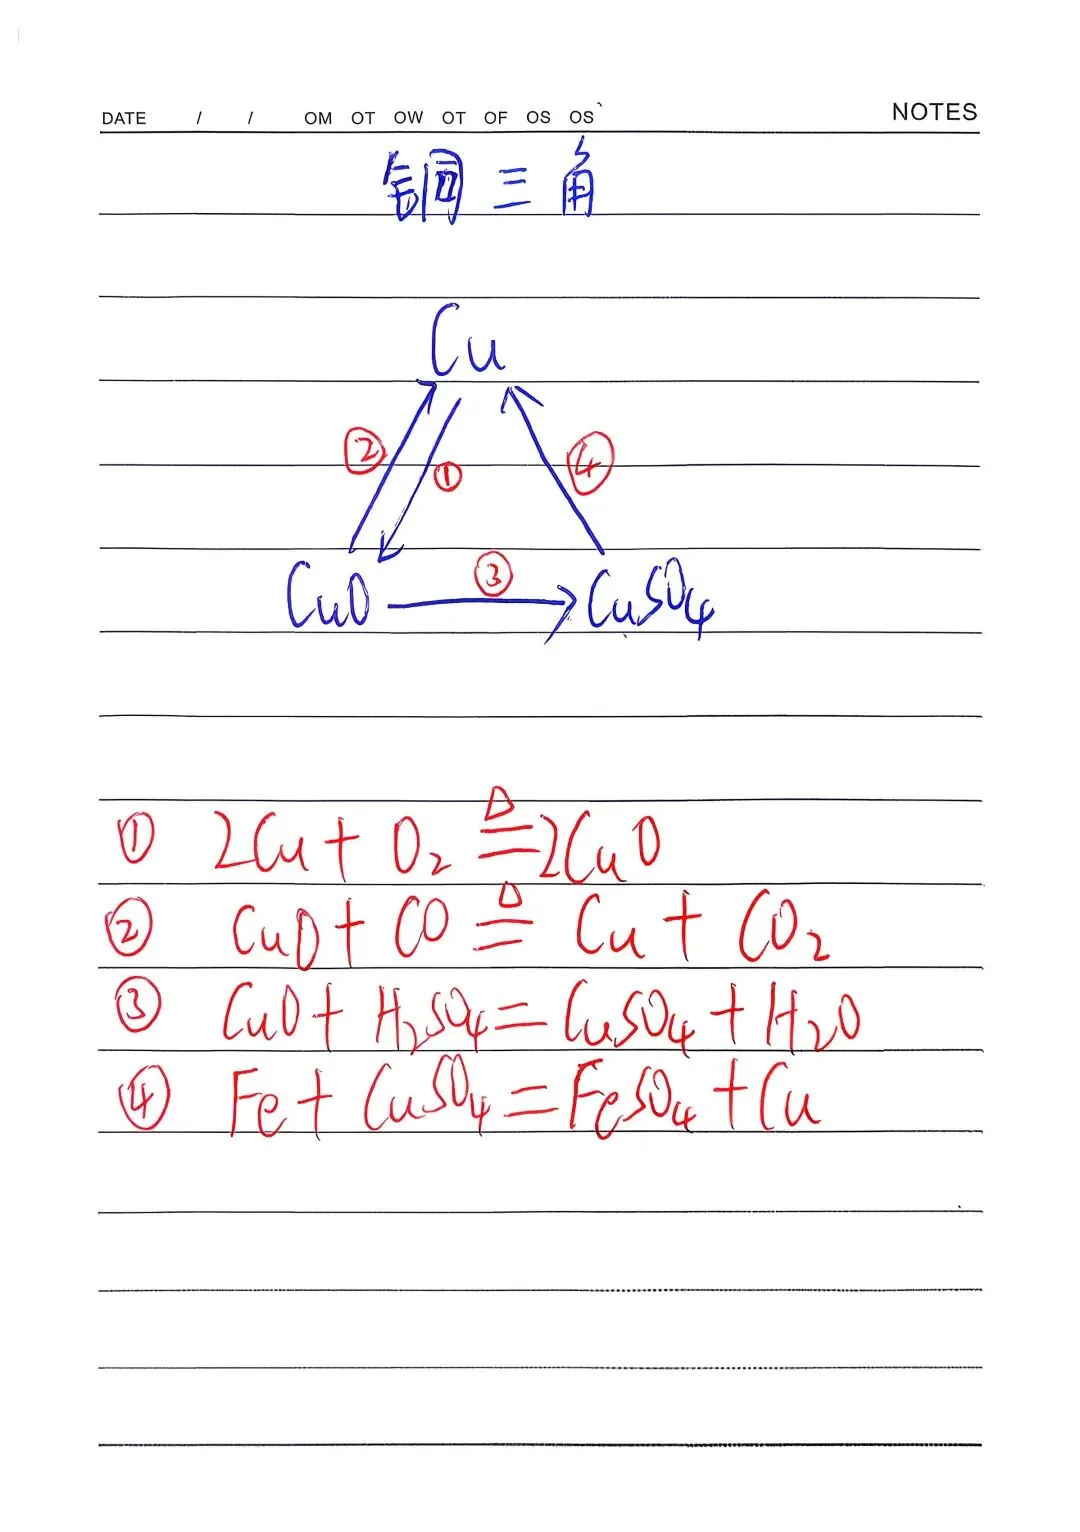 DATE / / OM OT OW OT OF OS OS NOTES
铜三角
Cu
② ① ④
③
CuO CuSO₄
① 2Cu + O₂ ≜ 2CuO
② CuO + CO ≜ Cu + CO₂
③ CuO + H₂SO₄ = CuSO₄ + H₂O
④ Fe + CuSO₄ = FeSO₄ + Cu